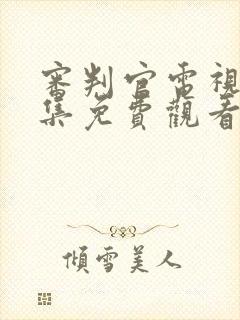 審判官電視
集免費觀看
傾雪美人